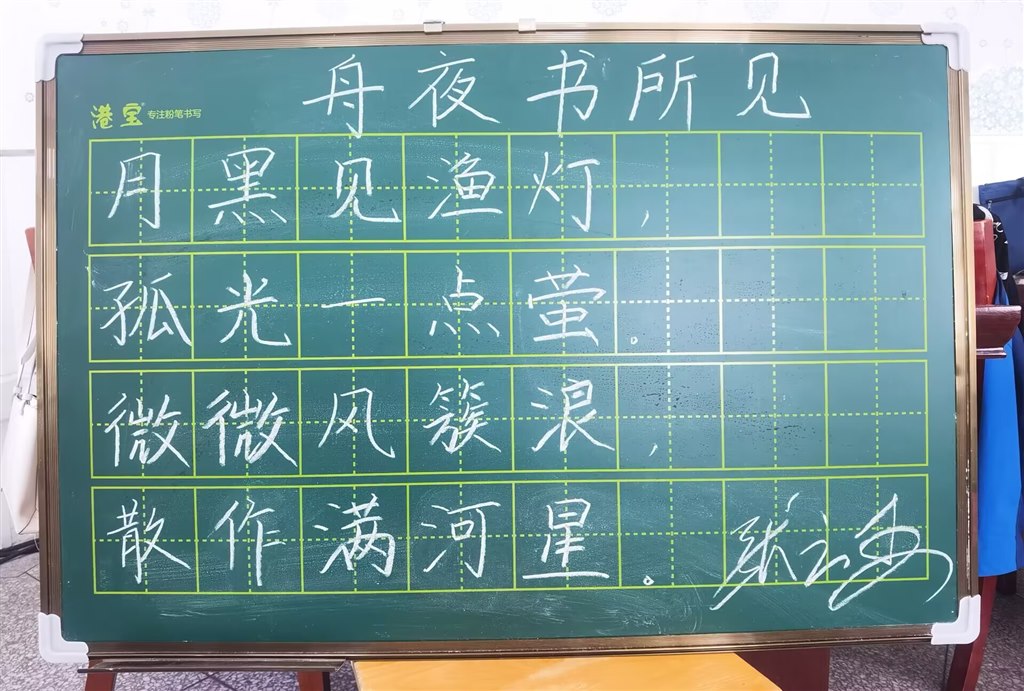 舟夜书所见
港宝 专注粉笔书写
月黑见渔灯，
孤光一点萤。
微微风簇浪，
散作满河星。